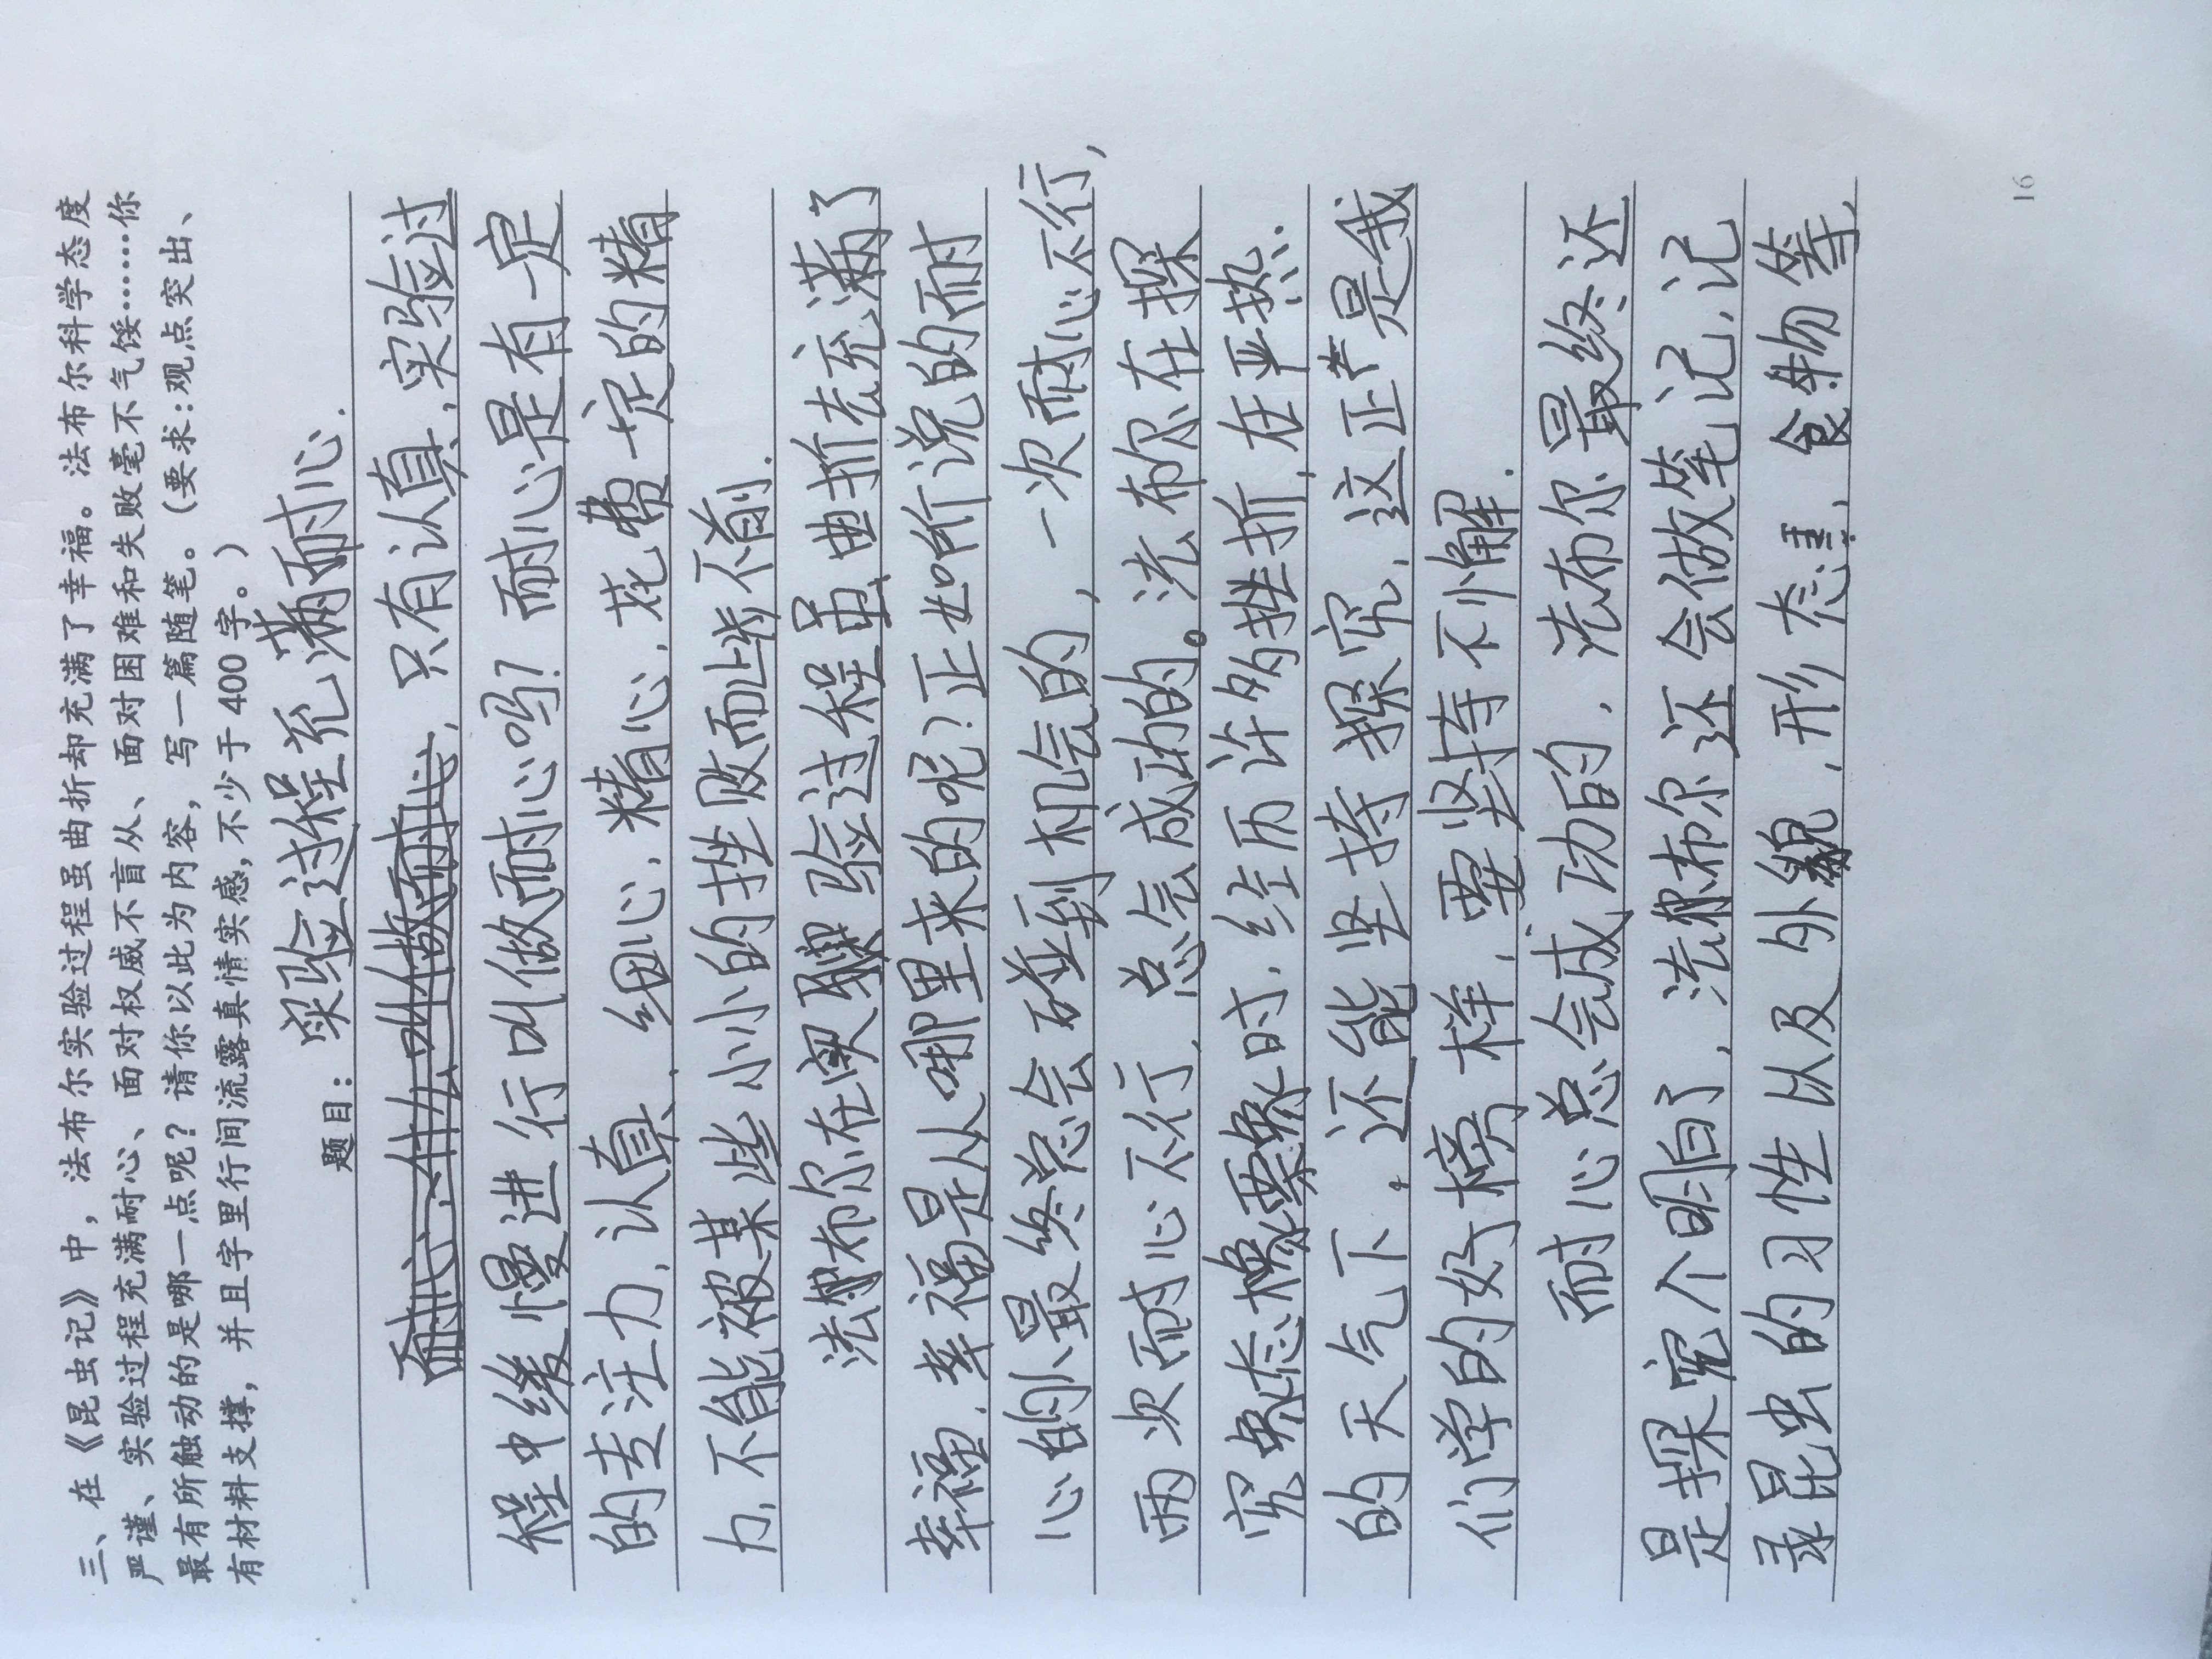 三、在《昆虫记》中，法布尔实验过程虽曲折却充满了幸福。法布尔科学态度
严谨、实验过程充满耐心、面对权威不盲从、面对困难和失败毫不气馁………你
最有所触动的是哪一点呢？请你以此为内容，写一篇随笔。（要求：观点突出、
有材料支撑，并且字里行间流露真情实感，不少于400字。）
题目：实验过程充满耐心.
只有认真,实验过
程中缓慢进行叫做耐心吗？耐心是有一定
的专注力,认真,细心,精心,花费一定的精
力,不能被某些小小的挫败而止步不前.
法布尔在实验过程虽曲折去充满了
幸福,幸福是从哪里来的呢？正如所说的耐
心的最终总会碰到机会的,一次耐心不行,
两次耐心不行,总会成功的。法布尔在探
究时,经历许多挫折,在严热.
的天气下,还能坚持探究,这正是我
们学的好榜样,要坚持不懈.
耐心总会成功的,法布尔最终还
是探究个明白了,法布尔还会做笔记,记
录昆虫的习性以及外貌,形态,食物等,
16